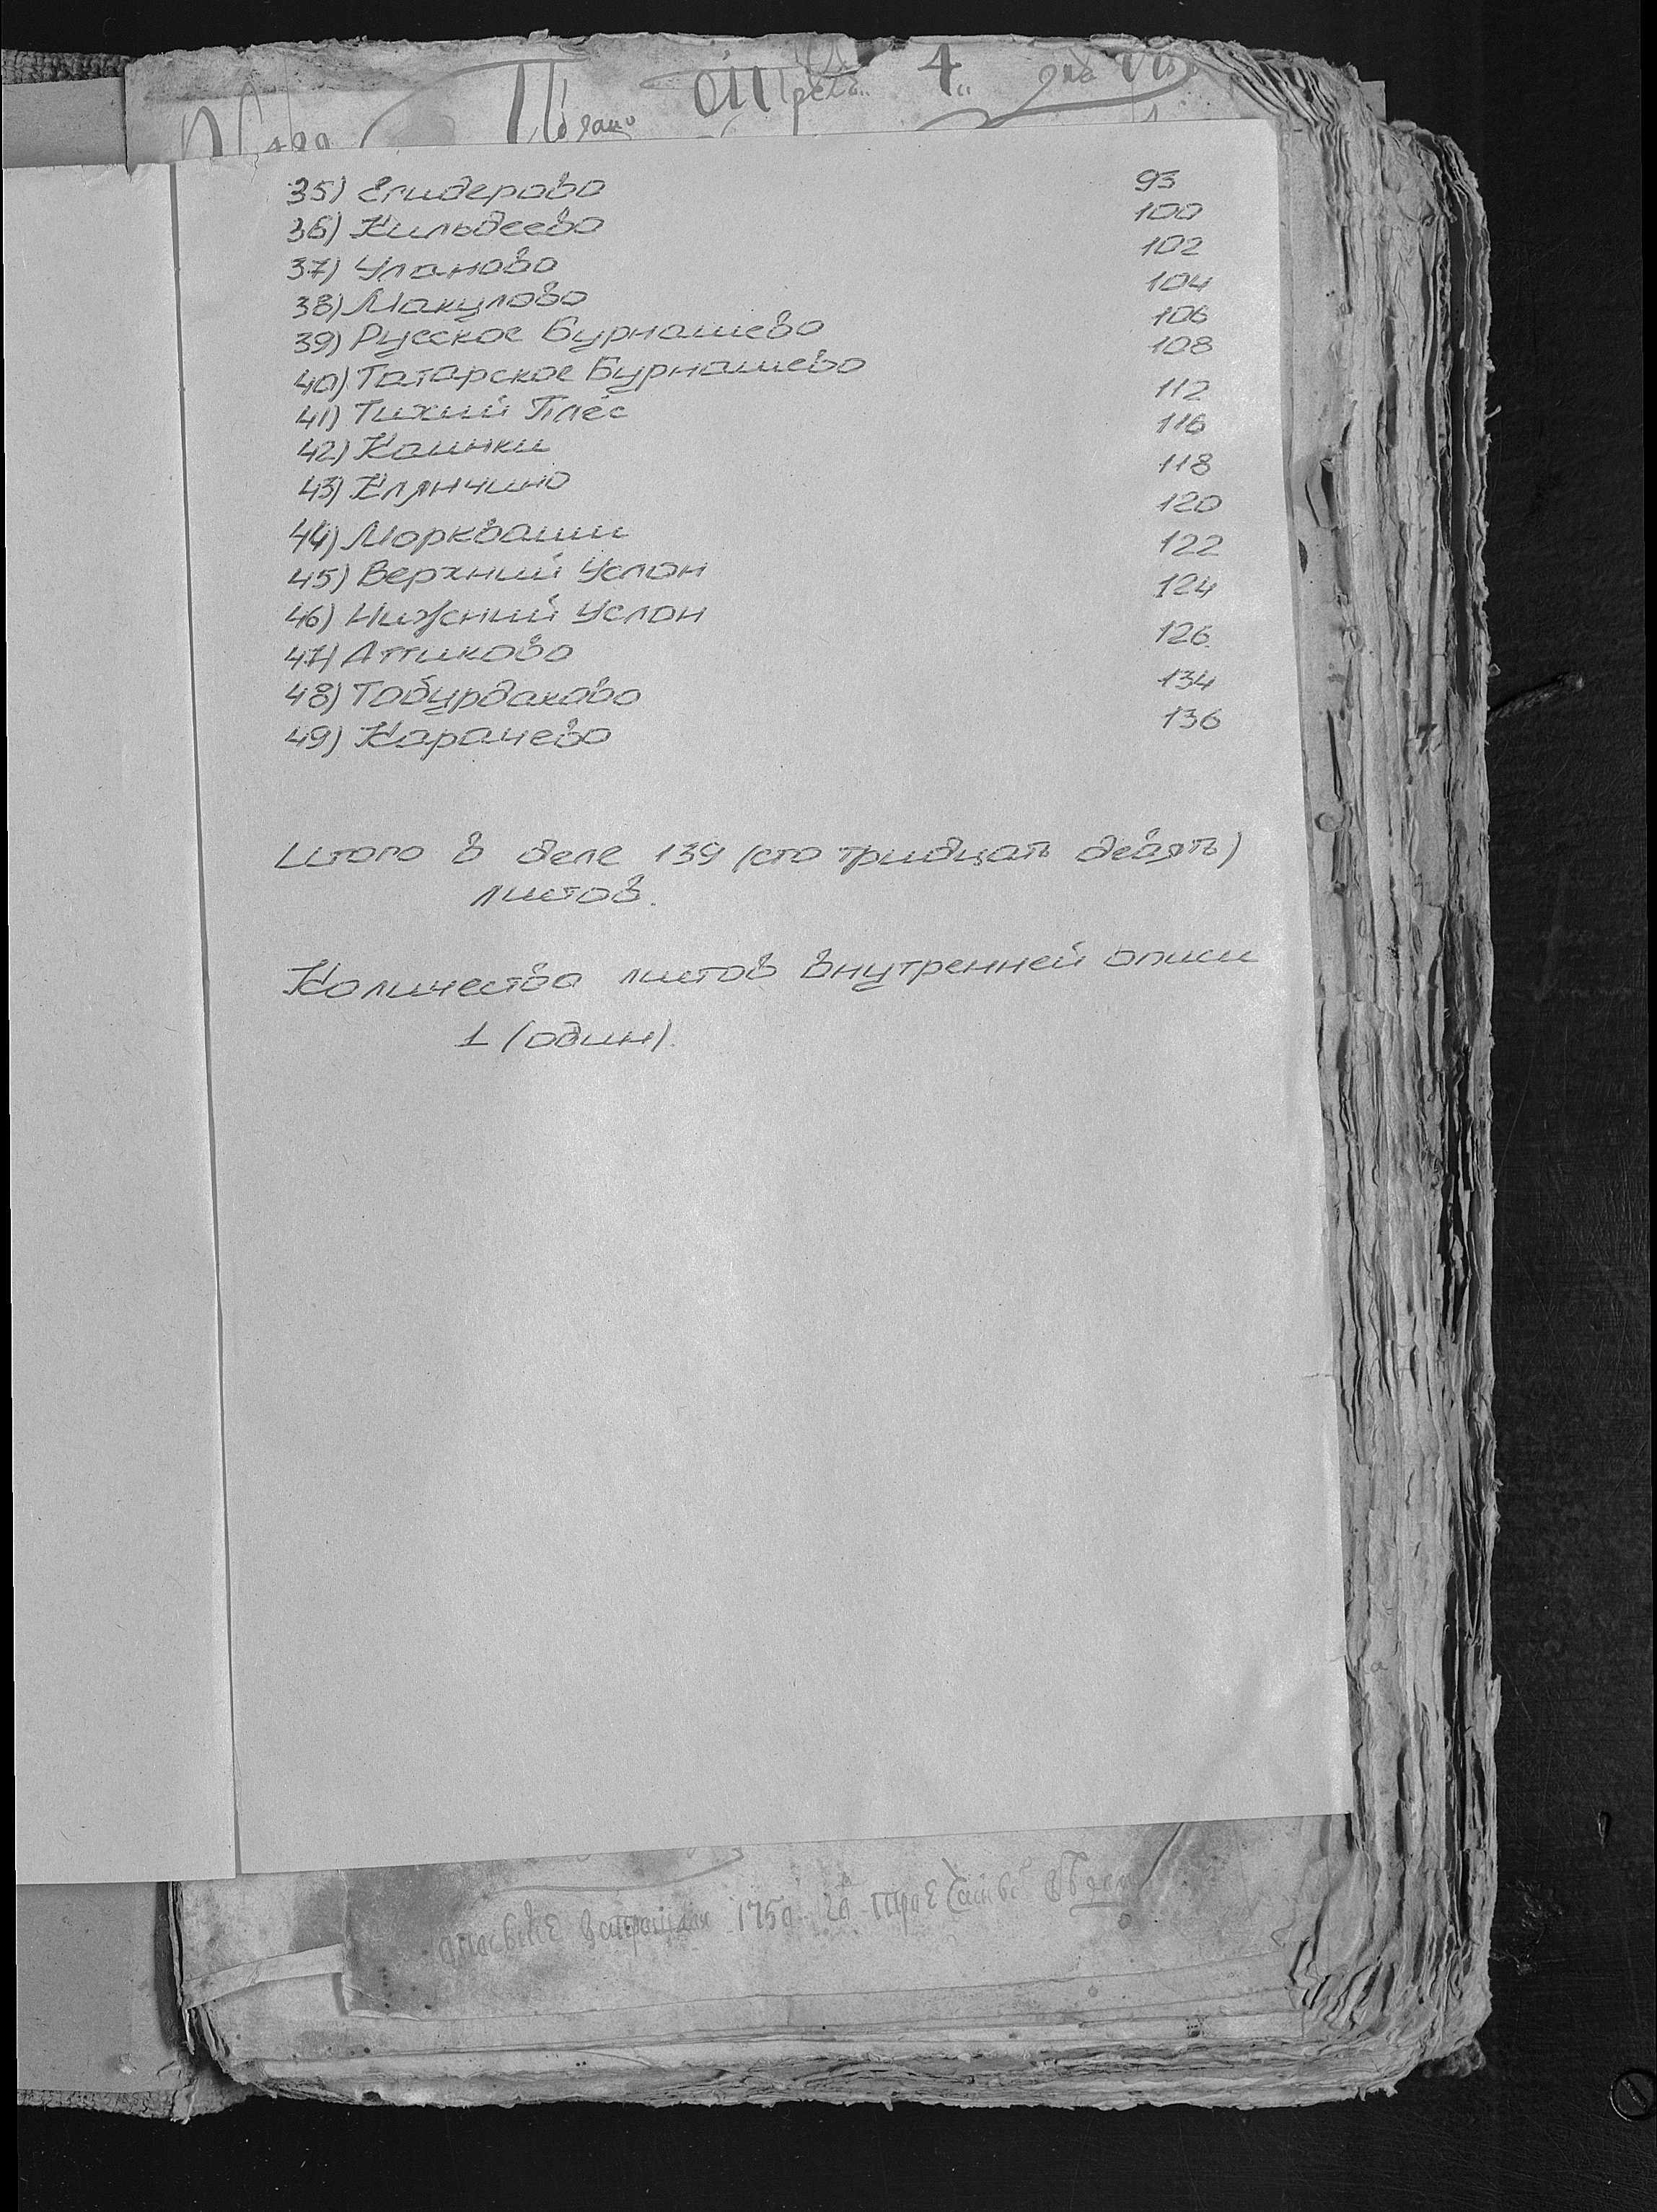 Подано Апреля 4 дня
35) Егидерово 93
36) Кильдеево 100
37) Уланово 102
38) Макулово 104
39) Русское Бурнашево 106
40) Татарское Бурнашево 108
41) Тихий Плёс 112
42) Каинки 116
43) Клянчино 118
44) Моркваши 120
45) Верхний Услон 122
46) Нижний Услон 124
47) Аттиково 126
48) Тобурдаково 134
49) Карачево 136
Итого в деле 139 (сто тридцать девять)
листов.
Количество листов внутренней описи
1 (один).
1750 го